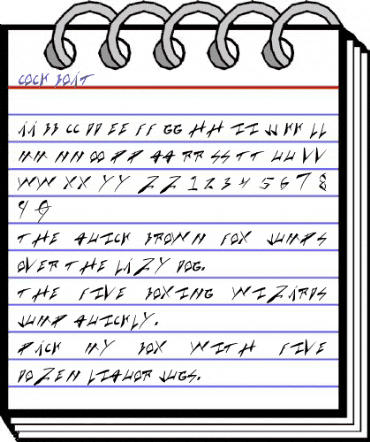 COCK BOAT
AA BB CC DD EE FF GG HH II JJ KK LL
MM NN OO PP QQ RR SS TT UU VV
WW XX YY ZZ 1 2 3 4 5 6 7 8
9 0
THE QUICK BROWN FOX JUMPS
OVER THE LAZY DOG.
THE FIVE BOXING WIZARDS
JUMP QUICKLY.
PACK MY BOX WITH FIVE
DOZEN LIQUOR JUGS.